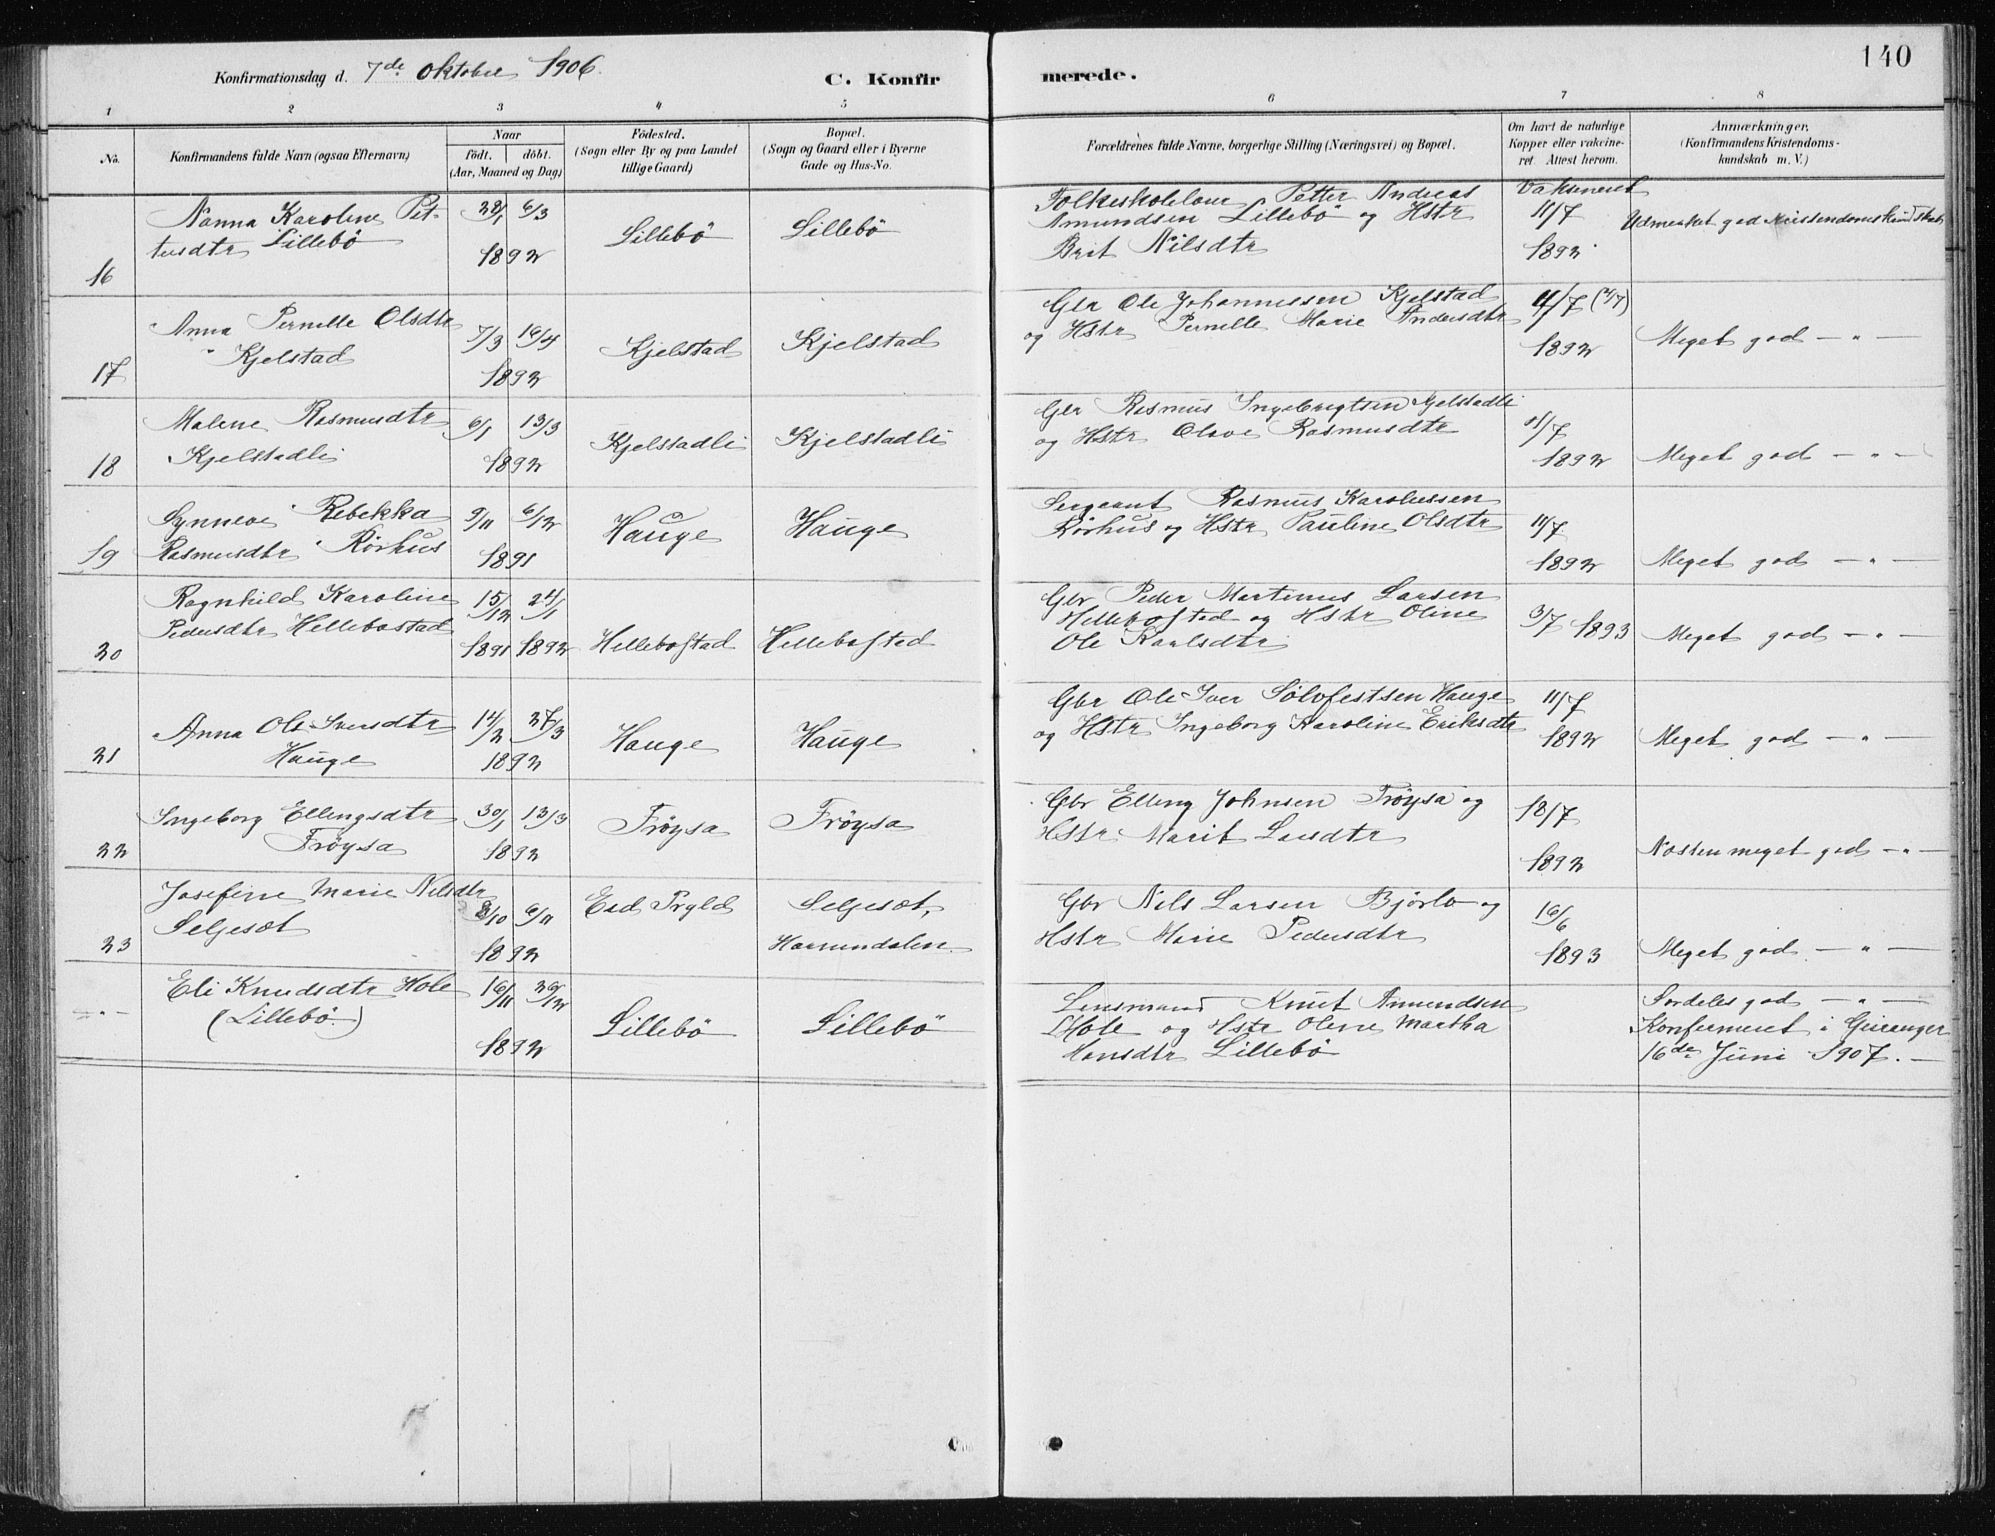 140
Konfirmationsdag d. 7de Oktober 1906.
C. Konfirmerede.
1 2 3 4 5 6 7 8
No.
Konfirmandens fulde Navn (ogsaa Efternavn)
Naar
födt. döbt.
(Aar, Maaned og Dag)
Födested.
(Sogn eller By og paa Landet
tillige Gaard)
Bopæl.
(Sogn og Gaard eller i Byerne
Gade og Hus-No.
Forældrenes fulde Navne, borgerlige Stilling (Næringsvei) og Bopæl.
Om havt de naturlige
Kopper eller vakcine-
ret. Attest herom.
Anmærkninger.
(Konfirmandens Kristendoms-
kundskab m. V.)
16
Nanna Karoline Pet-
tersdtr Lillebö
28/1 6/3
1892
Lillebö
Lillebö
Folkeskolelærer Petter Andreas
Amundsen Lillebö og Hstr
Brit Nilsdtr
Vaksineret
11/7
1892
Udmerket god Kristendomskundskab
17
Anna Pernille Olsdtr
Kjelstad
7/3 16/4
1892
Kjelstad
Kjelstad
Gbr Ole Johannessen Kjelstad
og Hstr Pernille Marie Andersdtr
11/7
1892
Meget god — " —
18
Malene Rasmusdtr
Kjelstadli
6/1 13/3
1892
Kjelstadli
Kjelstadli
Gbr Rasmus Ingebrigtsen Kjelstadli
og Hstr Olave Rasmusdtr
11/7
1892
Meget god — " —
19
Synneve Rebekka
Rasmusdtr Rörhus
9/11 6/12
1891
Hauge
Hauge
Sergeant Rasmus Karolussen
Rörhus og Hstr Pauline Olsdtr
11/7
1892
Meget god — " —
20
Ragnhild Karoline
Pedersdtr Hellebostad
15/12 24/1
1891 1892
Hellebostad
Hellebostad
Gbr Peder Martinus Larsen
Hellebostad og Hstr Oline
Ole Karlsdtr
3/7 1893
Meget god — " —
21
Anna Ole-Iversdtr
Hauge
14/2 27/3
1892
Hauge
Hauge
Gbr Ole-Iver Sölvfestsen Hauge
og Hstr Ingeborg Karoline Eriksdtr
11/7
1892
Meget god — " —
22
Ingeborg Ellingsdtr
Fröysa
30/1 13/3
1892
Fröysa
Fröysa
Gbr Elling Johnsen Fröysa og
Hstr Marit Larsdtr
18/7
1892
Næsten meget god — " —
23
Josefine Marie Nilsdtr
Seljesæt
8/10 6/11
1892
Eid
Seljesæt,
Gbr Nils Larsen Bjørlo og
Hstr Marie Pedersdtr
16/6
1893
Meget god — " —
— " —
Eli Knudsdtr Hole
(Lillebö)
16/11 26/12
1892
Lillebö
Lillebö
Lensmand Knut Amundsen
Hole og Hstr Oline Martha
Hansdtr Lillebö
Særdeles god — " —
Konfirmeret i Geiranger
16de Juni 1907. —